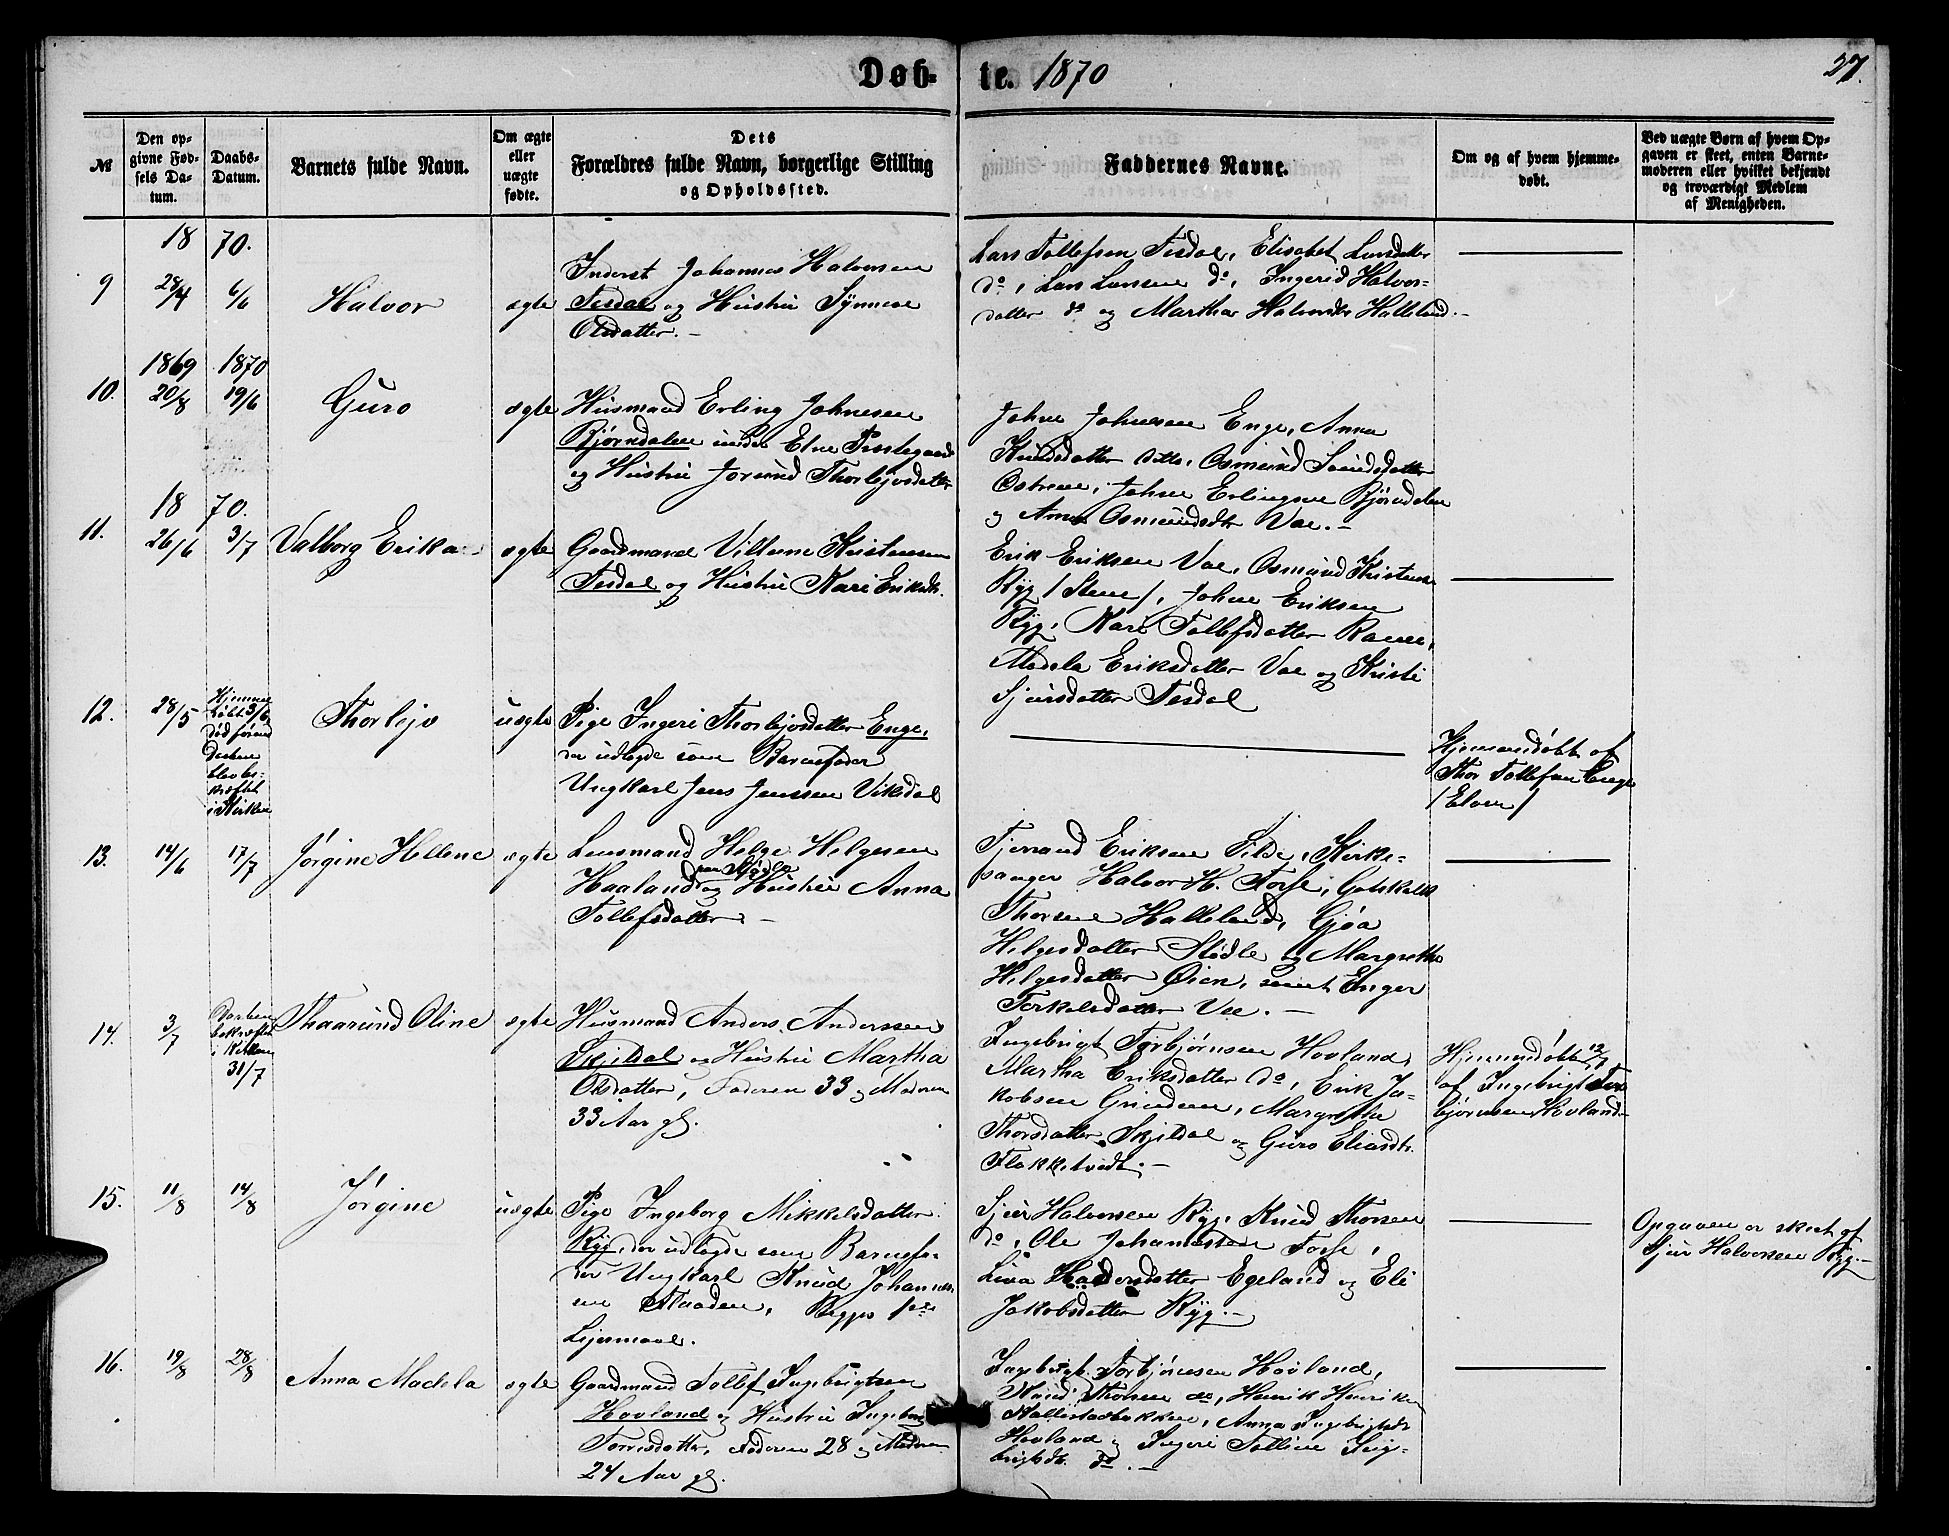 Døb-
te. 1870
27.
№
Den op-
givne Fød-
sels Da-
tum.
Daabs-
Datum.
Barnets fulde Navn.
Om ægte
eller
uægte
fødte.
Dets
Forældres fulde Navn, borgerlige Stilling
og Opholdssted.
Faddernes Navne.
Om og af hvem hjemme-
døbt.
Ved uægte Børn af hvem Op-
gaven er skeet, enten Barne-
moderen eller hvilket bekjendt
og troværdigt Medlem
af Menigheden.
18 70.
9
28/4
6/6
Halvor
ægte
Inderst Johannes Halvorsen
Tesdal og Hustru Synneve
Olsdatter.-
Lars Tollefsen Tesdal, Elisabet Larsdatter
do, Lars Larsen do, Ingerid Halvors-
datter do og Martha Halvorsdtr Halleland.-
1869 1870
10.
20/8
19/6
Guro
ægte
Husmand Erling Johnesen
Bjørndalen under Elne Præstegaard
og Hustru Jorund Thorlejvsdatter
Johne Johnesen Enge, Anna
Knudsdatter ditto, Osmund
Johne Erlingsen Bjørndalen
og Anna Osmundsdtr Vae.-
18 70.
11.
26/6
3/7
Valborg Erika
ægte
Gaardmand Villum Kristensen
Tesdal og Hustru Kari Eriksdtr.
Erik Eriksen Vae, Osmund Kristens
Ryg /Stene/, Johne Eriksen
Ryg, Kari Tollefsdatter
Madela Eriksdatter Vae og Kristi
Sjursdatter Tesdal
12.
28/5
Hjemme
døbt 3/6,
død førend
Daaben
blev be-
kræftet
i Kirken
Thorlejv
uægte
Pige Ingeri Thorlejvsdatter Enge,
der udlagde som Barnefader
Ungkarl Jens Jenssen Vikedal
Hjemmedøbt af
Thor Tollefsen Enge
/Elven/
13.
14/6
17/7
Jørgine Hellene
ægte
Lensmand Helge Helgesen
Haaland paa Stødle og Hustru Anna
Tollefsdatter.-
Tjerrand Eriksen Silde, Kirke-
sanger Halvor H. Fosse, Gotskalk
Thorsen Halleland, Gjøa
Helgesdatter Stødle og Margrethe
Helgesdatter Øien, samt Inger
Torkelsdatter Vae.-
14.
3/7
Daaben
bekræftet
i Kirken
31/7
Thaarund Oline
ægte
Husmand Anders Anderssen
Skjeldal og Hustru Martha
Olsdatter, Faderen 33 og Moderen
33 Aar gl.
Ingebrigt Torbjørnsen Hovland,
Martha Eriksdatter do, Erik Ja-
kobsen Grinden, Margrethe
Thorsdatter Skjeldal og Guro Eliasdtr.
Flokketvedt.-
Hjemmedøbt 12/7
af Ingebrigt Tor-
bjørnsen Hovland-
15.
11/8
14/8
Jørgine
uægte
Pige Ingeborg Mikkelsdatter
Ryg, der udlagde som Barnefa-
der Ungkarl Knud Johannes-
sen Staaden, Begges 1ste
Lejermaal.
Sjur Halvorsen Ryg, Knud Thorsen
do, Ole Johannessen Fosse,
Lina Haldorsdatter Egeland og Eli
Jakobsdatter Ryg.-
Opgaven er skeet af
Sjur Halvorsen Ryg.-
16.
19/8
28/8
Anna Madela
ægte
Gaardmand Tollef Ingebrigtsen
Hovland og Hustru Ingeborg
Torrisdatter, Faderen 28 og Moderen
24 Aar gl.
Ingebrigt Torbjørnsen Hovland,
Knud Thorsen do, Henrik Henriksen
Kallestadbakken, Anna Ingebrigtsdtr
Hovland og Ingeri Talline Inge-
brigtsdtr. do.-